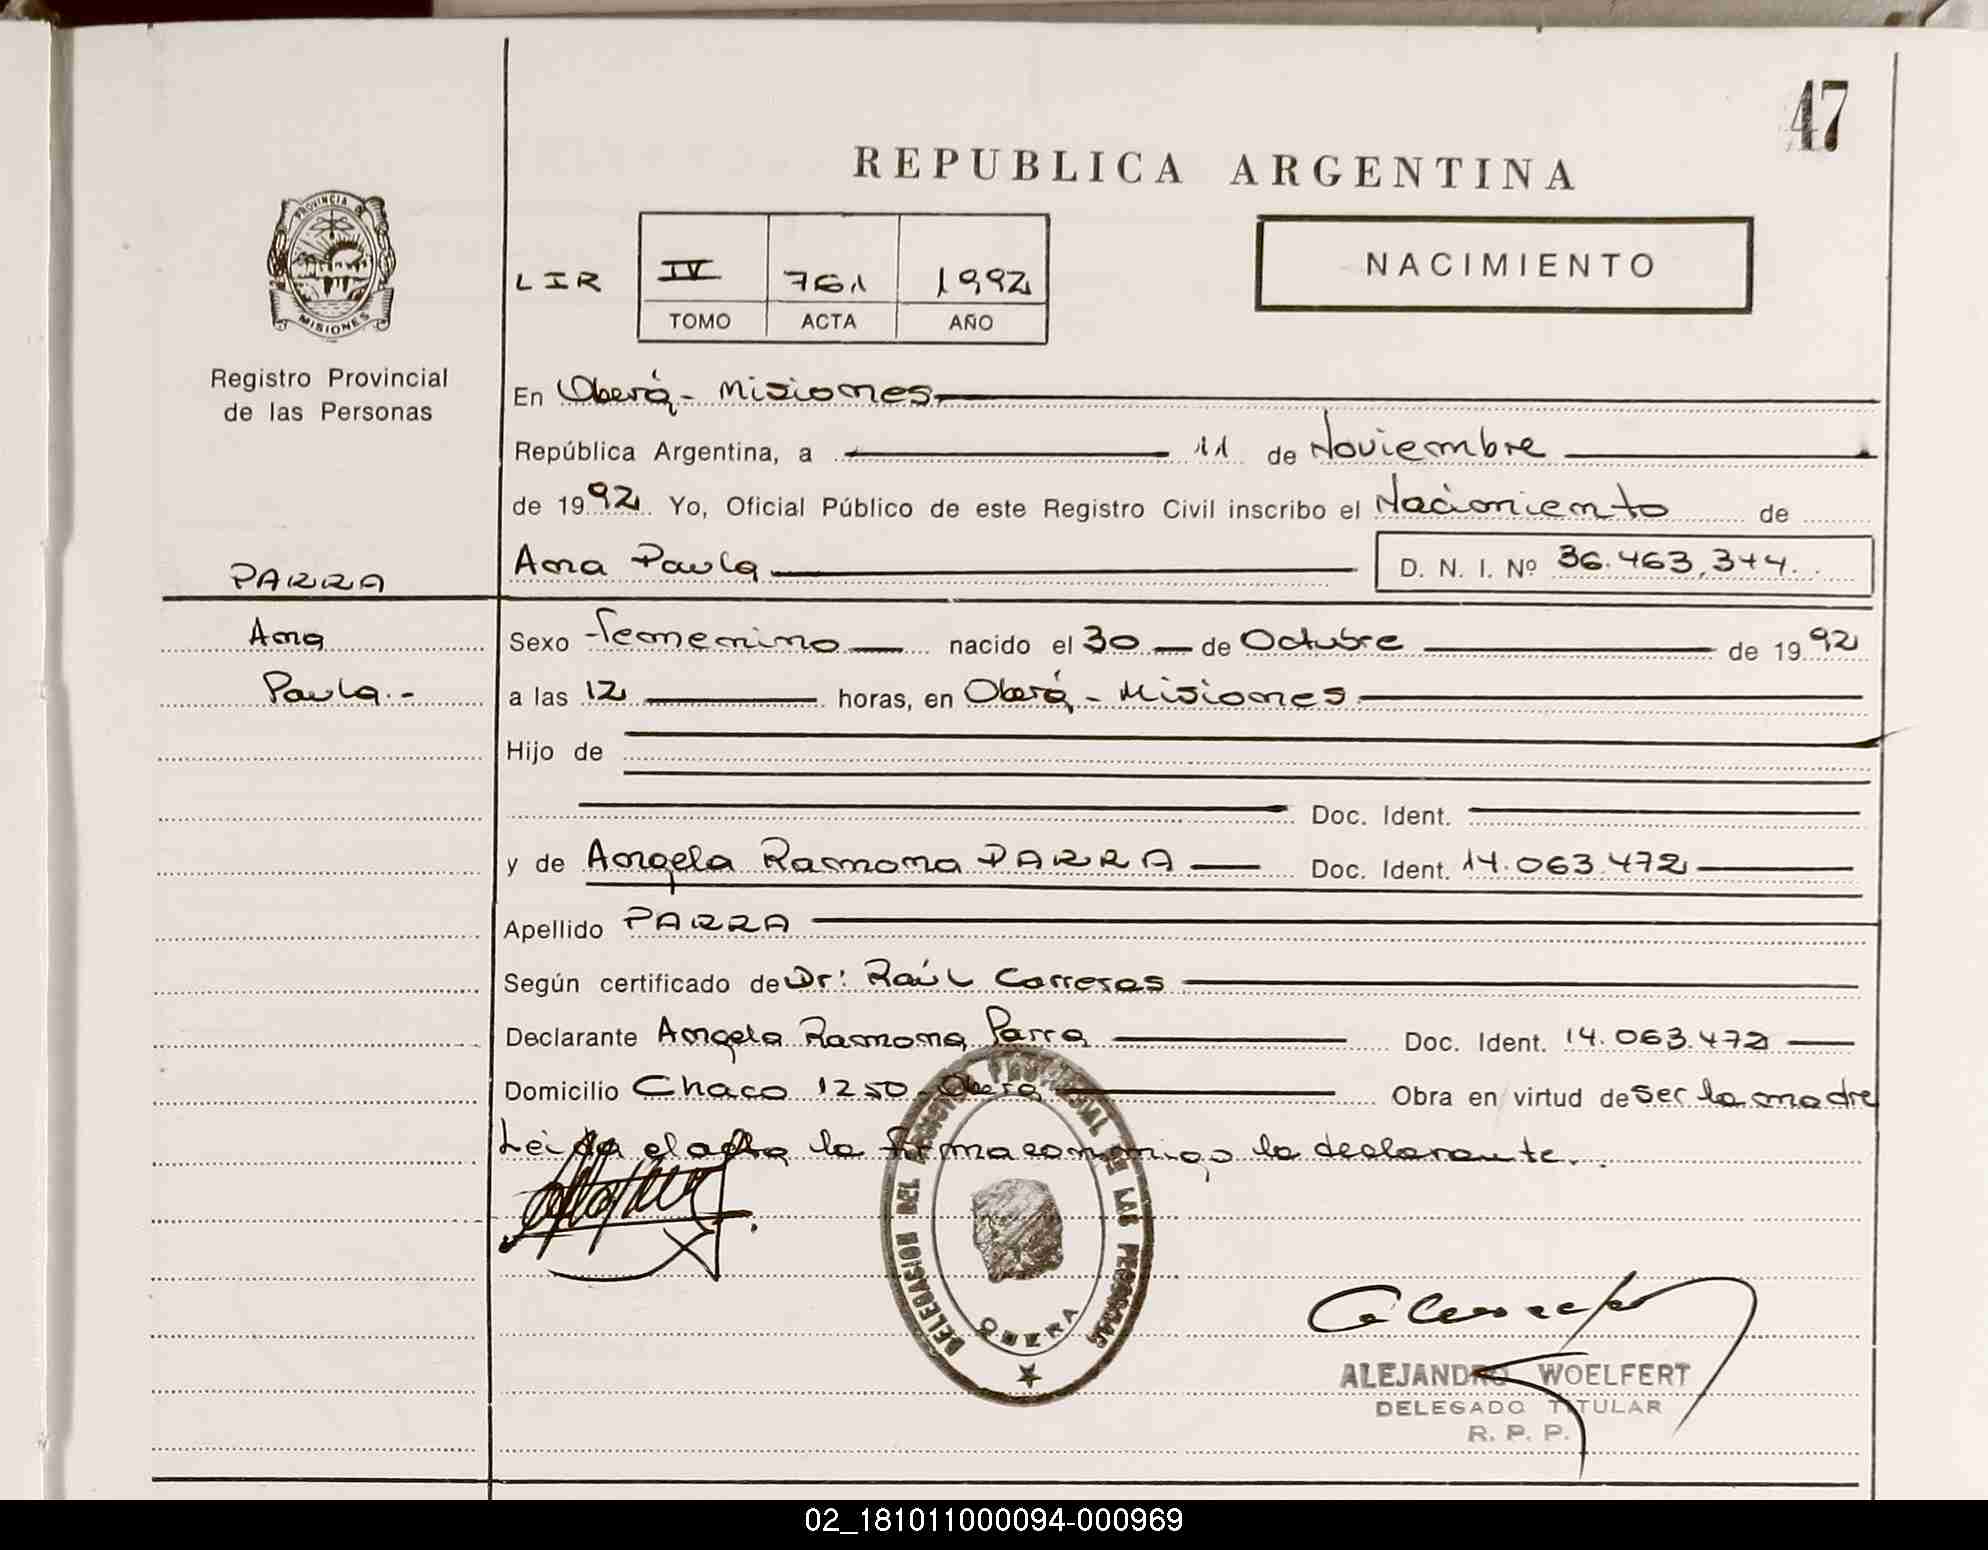 47
REPUBLICA ARGENTINA
PROVINCIA DE
MISIONES
NACIMIENTO
LIR IV 761 1992
TOMO ACTA AÑO
Registro Provincial
de las Personas
En Oberá - Misiones
República Argentina, a 11 de Noviembre
de 1992 Yo, Oficial Público de este Registro Civil inscribo el Nacimiento de
PARRA
Ana Paula D. N. I. Nº 36.463,344.
Ana
Paula.-
Sexo femenino nacido el 30 de Octubre de 1992
a las 12 horas, en Oberá - Misiones
Hijo de
Doc. Ident.
y de Angela Ramona PARRA Doc. Ident. 14.063.472
Apellido PARRA
Según certificado de Dr: Raúl Carreras
Declarante Angela Ramona Parra Doc. Ident. 14.063.472
Domicilio Chaco 1250 Obera Obra en virtud de ser la madre
Leida el acta la firma conmigo la declarante.
DELEGACION DEL REGISTRO PROVINCIAL DE LAS PERSONAS
OBERA
ALEJANDRO WOELFERT
DELEGADO TITULAR
R. P. P.
02_181011000094-000969